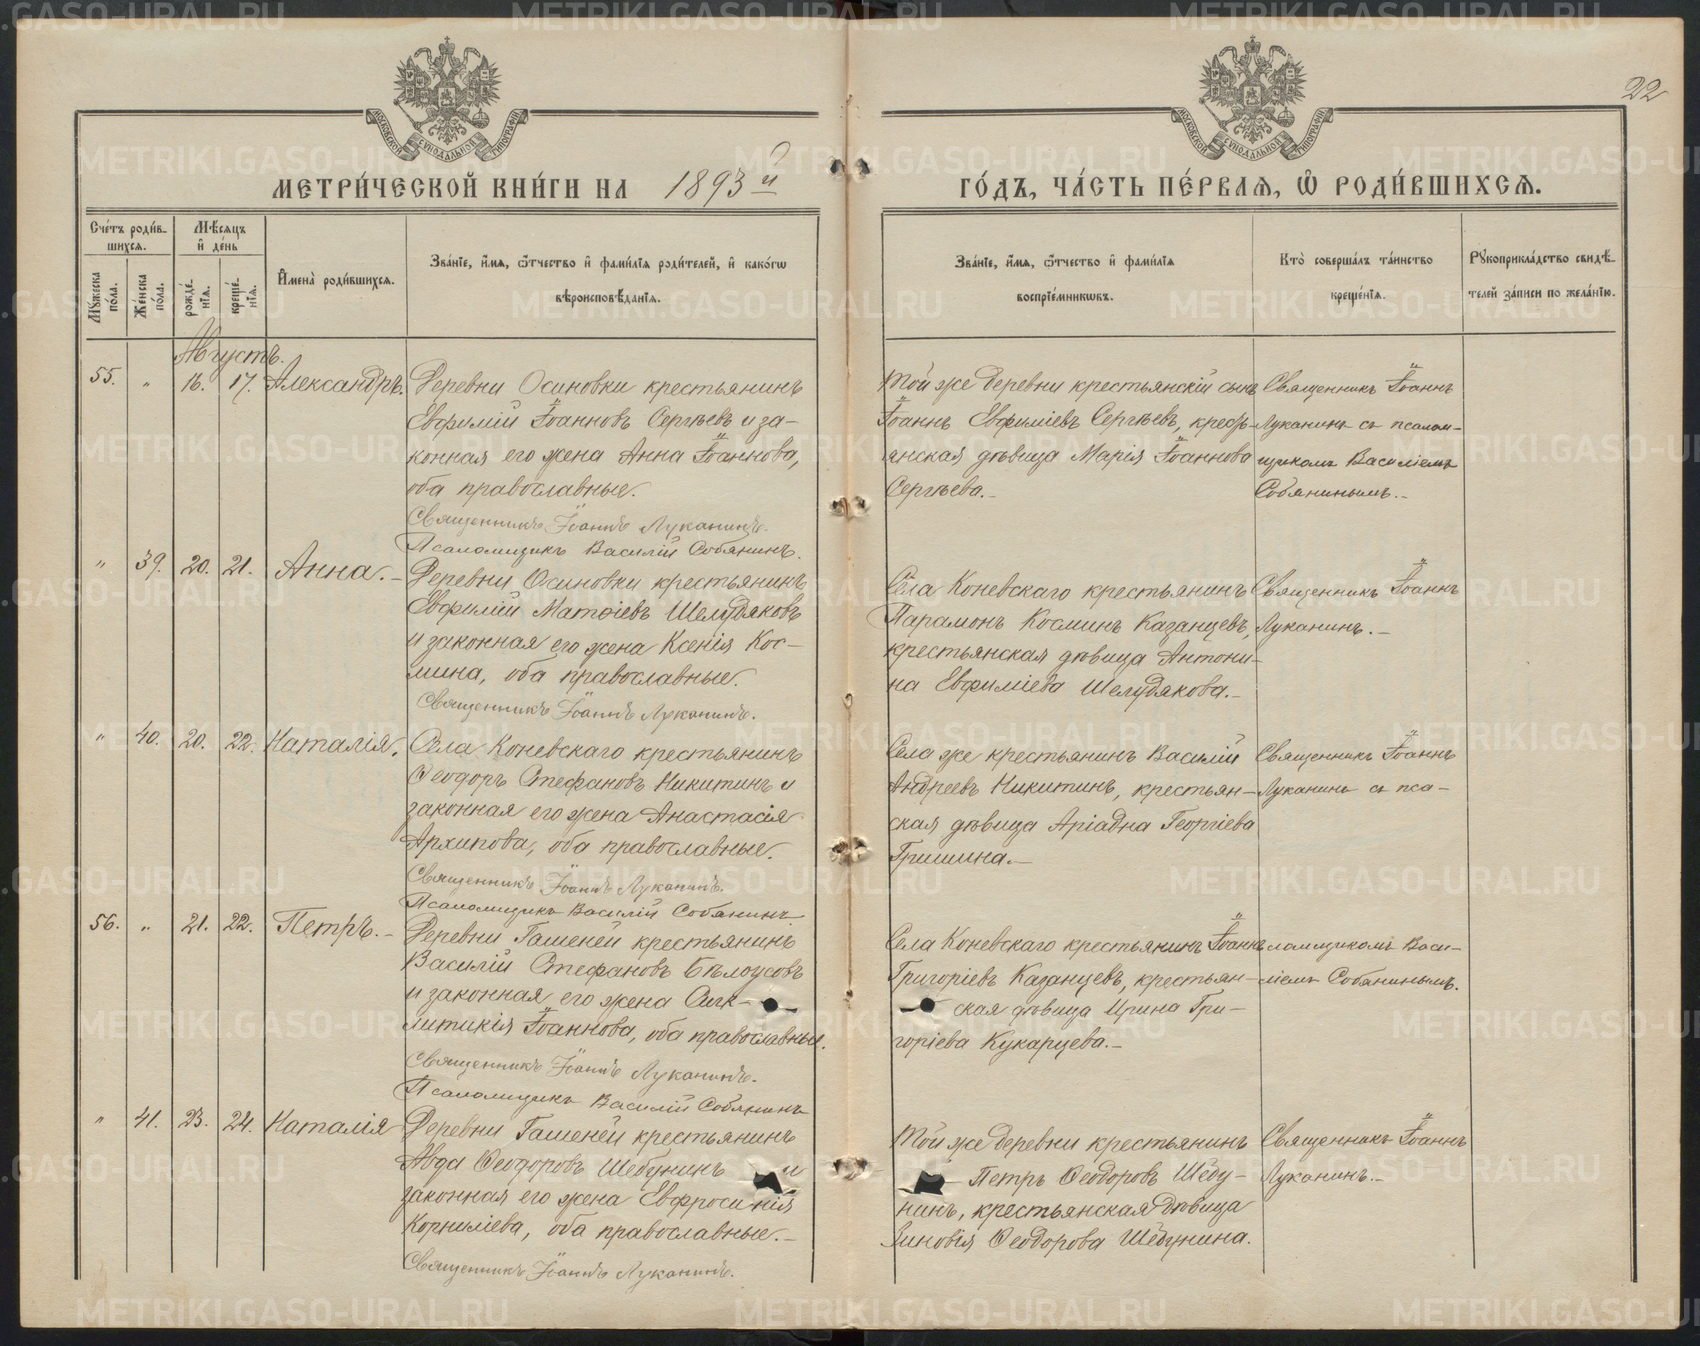 22
МОСКОВСКОЙ СѴНОДАЛЬНОЙ ТИПОГРАФІИ
МОСКОВСКОЙ СѴНОДАЛЬНОЙ ТИПОГРАФІИ
МЕТРИ́ЧЕСКОЙ КНИ́ГИ НА 1893й
ГО́ДЪ, ЧА́СТЬ ПЕ́РВАѦ, Ѽ РОДИ́ВШИХСѦ.
Сче́тъ роди́в-
шихсѧ.
Мꙋ́жеска по́ла.
Же́нска по́ла.
Мѣ́сѧцъ и҆ де́нь
рожде́-
нїѧ.
креще́-
нїѧ.
И҆мена̀ роди́вшихсѧ.
Зва́нїе, и҆́мѧ, ѻ҆́тчество и҆ фами́лїѧ роди́телей, и҆ како́гѡ
вѣроисповѣ́данїѧ.
Зва́нїе, и҆́мѧ, ѻ҆́тчество и҆ фами́лїѧ
воспрїе́мникѡвъ.
Кто̀ соверша́лъ та́инство
креще́нїѧ.
Рꙋкоприкла́дство свидѣ́-
телей за́писи по жела́нїю.
Августъ.
55. " 16. 17. Александръ.
Деревни Осиновки крестьянинъ
Евфимій Іоанновъ Сергѣевъ и за-
конная его жена Анна Іоаннова,
оба православные.
Священникъ Іоаннъ Луканинъ.
Псаломщикъ Василій Собянинъ.
Той же деревни крестьянскій сынъ
Іоаннъ Евфиміевъ Сергѣевъ, кресть-
янская дѣвица Марія Іоаннова
Сергѣева.-
Священникъ Іоаннъ
Луканинъ съ псалом-
щикомъ Василіемъ
Собянинымъ.-
" 39. 20. 21. Анна.-
Деревни Осиновки крестьянинъ
Евфимій Матѳіевъ Шелудяковъ
и законная его жена Ксенія Кос-
мина, оба православные.
Священникъ Іоаннъ Луканинъ.
Села Коневскаго крестьянинъ
Парамонъ Косминъ Казанцевъ,
крестьянская дѣвица Антони-
на Евфиміева Шелудякова.-
Священникъ Іоаннъ
Луканинъ.-
" 40. 20. 22. Наталія.
Села Коневскаго крестьянинъ
Ѳеодоръ Стефановъ Никитинъ и
законная его жена Анастасія
Архипова, оба православные.
Священникъ Іоаннъ Луканинъ.
Псаломщикъ Василій Собянинъ
Села же крестьянинъ Василій
Андреевъ Никитинъ, крестьян-
ская дѣвица Аріадна Георгіева
Гришина.-
Священникъ Іоаннъ
Луканинъ съ пса-
56. " 21. 22. Петръ.-
Деревни Гашеней крестьянинъ
Василій Стефановъ Бѣлоусовъ
и законная его жена Синк-
литикія Іоаннова, оба православные.
Священникъ Іоаннъ Луканинъ.
Псаломщикъ Василій Собянинъ
Села Коневскаго крестьянинъ Іоаннъ
Григоріевъ Казанцевъ, крестьян-
ская дѣвица Ирина Гри-
горіева Кукарцева.-
ломщикомъ Васи-
ліемъ Собянинымъ.
" 41. 23. 24. Наталія
Деревни Гашеней крестьянинъ
Авда Ѳеодоровъ Шебунинъ и
законная его жена Евфросинія
Корниліева, оба православные.-
Священникъ Іоаннъ Луканинъ.
Той же деревни крестьянинъ
Петръ Ѳеодоровъ Шебу-
нинъ, крестьянская дѣвица
Зиновія Ѳеодорова Шебунина.
Священникъ Іоаннъ
Луканинъ.-
METRIKI.GASO-URAL.RU